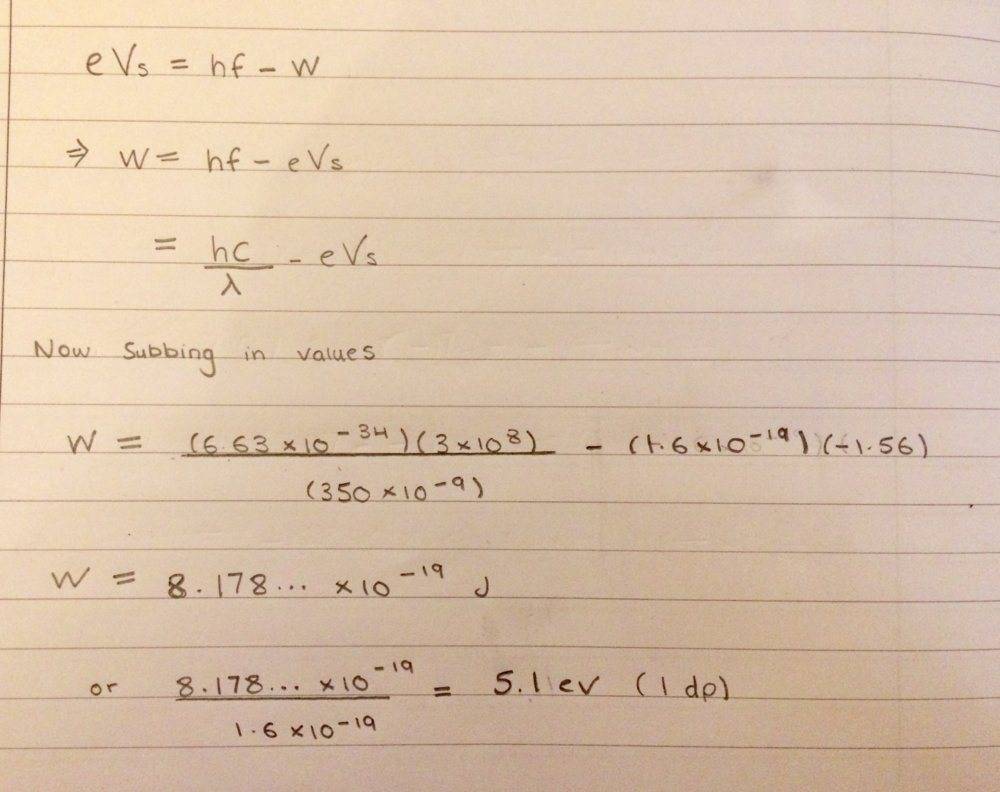 eVs = hf - W
⇒ W = hf - eVs
= hc/λ - eVs
Now Subbing in values
W = (6.63 × 10⁻³⁴)(3 × 10⁸)/(350 × 10⁻⁹) - (1.6 × 10⁻¹⁹)(-1.56)
W = 8.178... × 10⁻¹⁹ J
or 8.178... × 10⁻¹⁹/1.6 × 10⁻¹⁹ = 5.1 ev (1 dp)